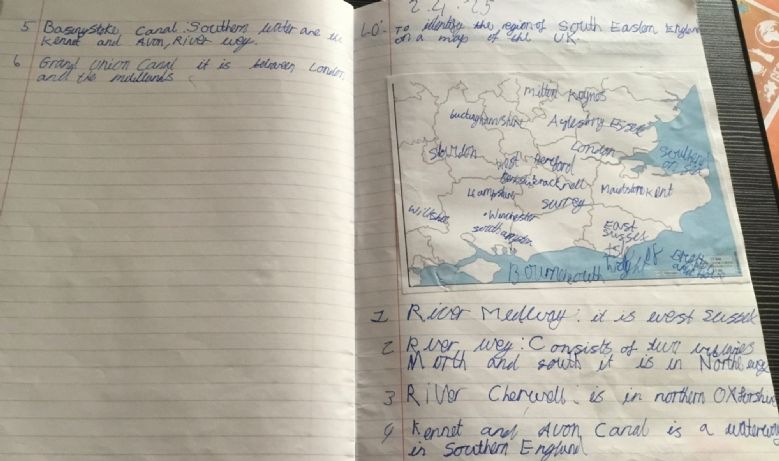 5 Basingstoke Canal: Southern water are in
Kennet and Avon, River wey.
6 Grand Union Canal it is between London
and the midllands
2.4.25
L.O: To identify the region of South Eastern England
on a map of the UK
milton Keynes
buckinghamshire Aylesbury Essex
London
Swindon west hereford Southend on sea
bracknell
Hampshire Maidstone Kent
Surrey
Wiltshire Winchester
Southampton East
Sussex
Bournemouth
1 River Medway: it is east Sussex
2 River wey: Consists of two
North and south it is in North
3 River Cherwell: is in northern OXforshire
4 Kennet and Avon Canal is a waterway
in Southern England